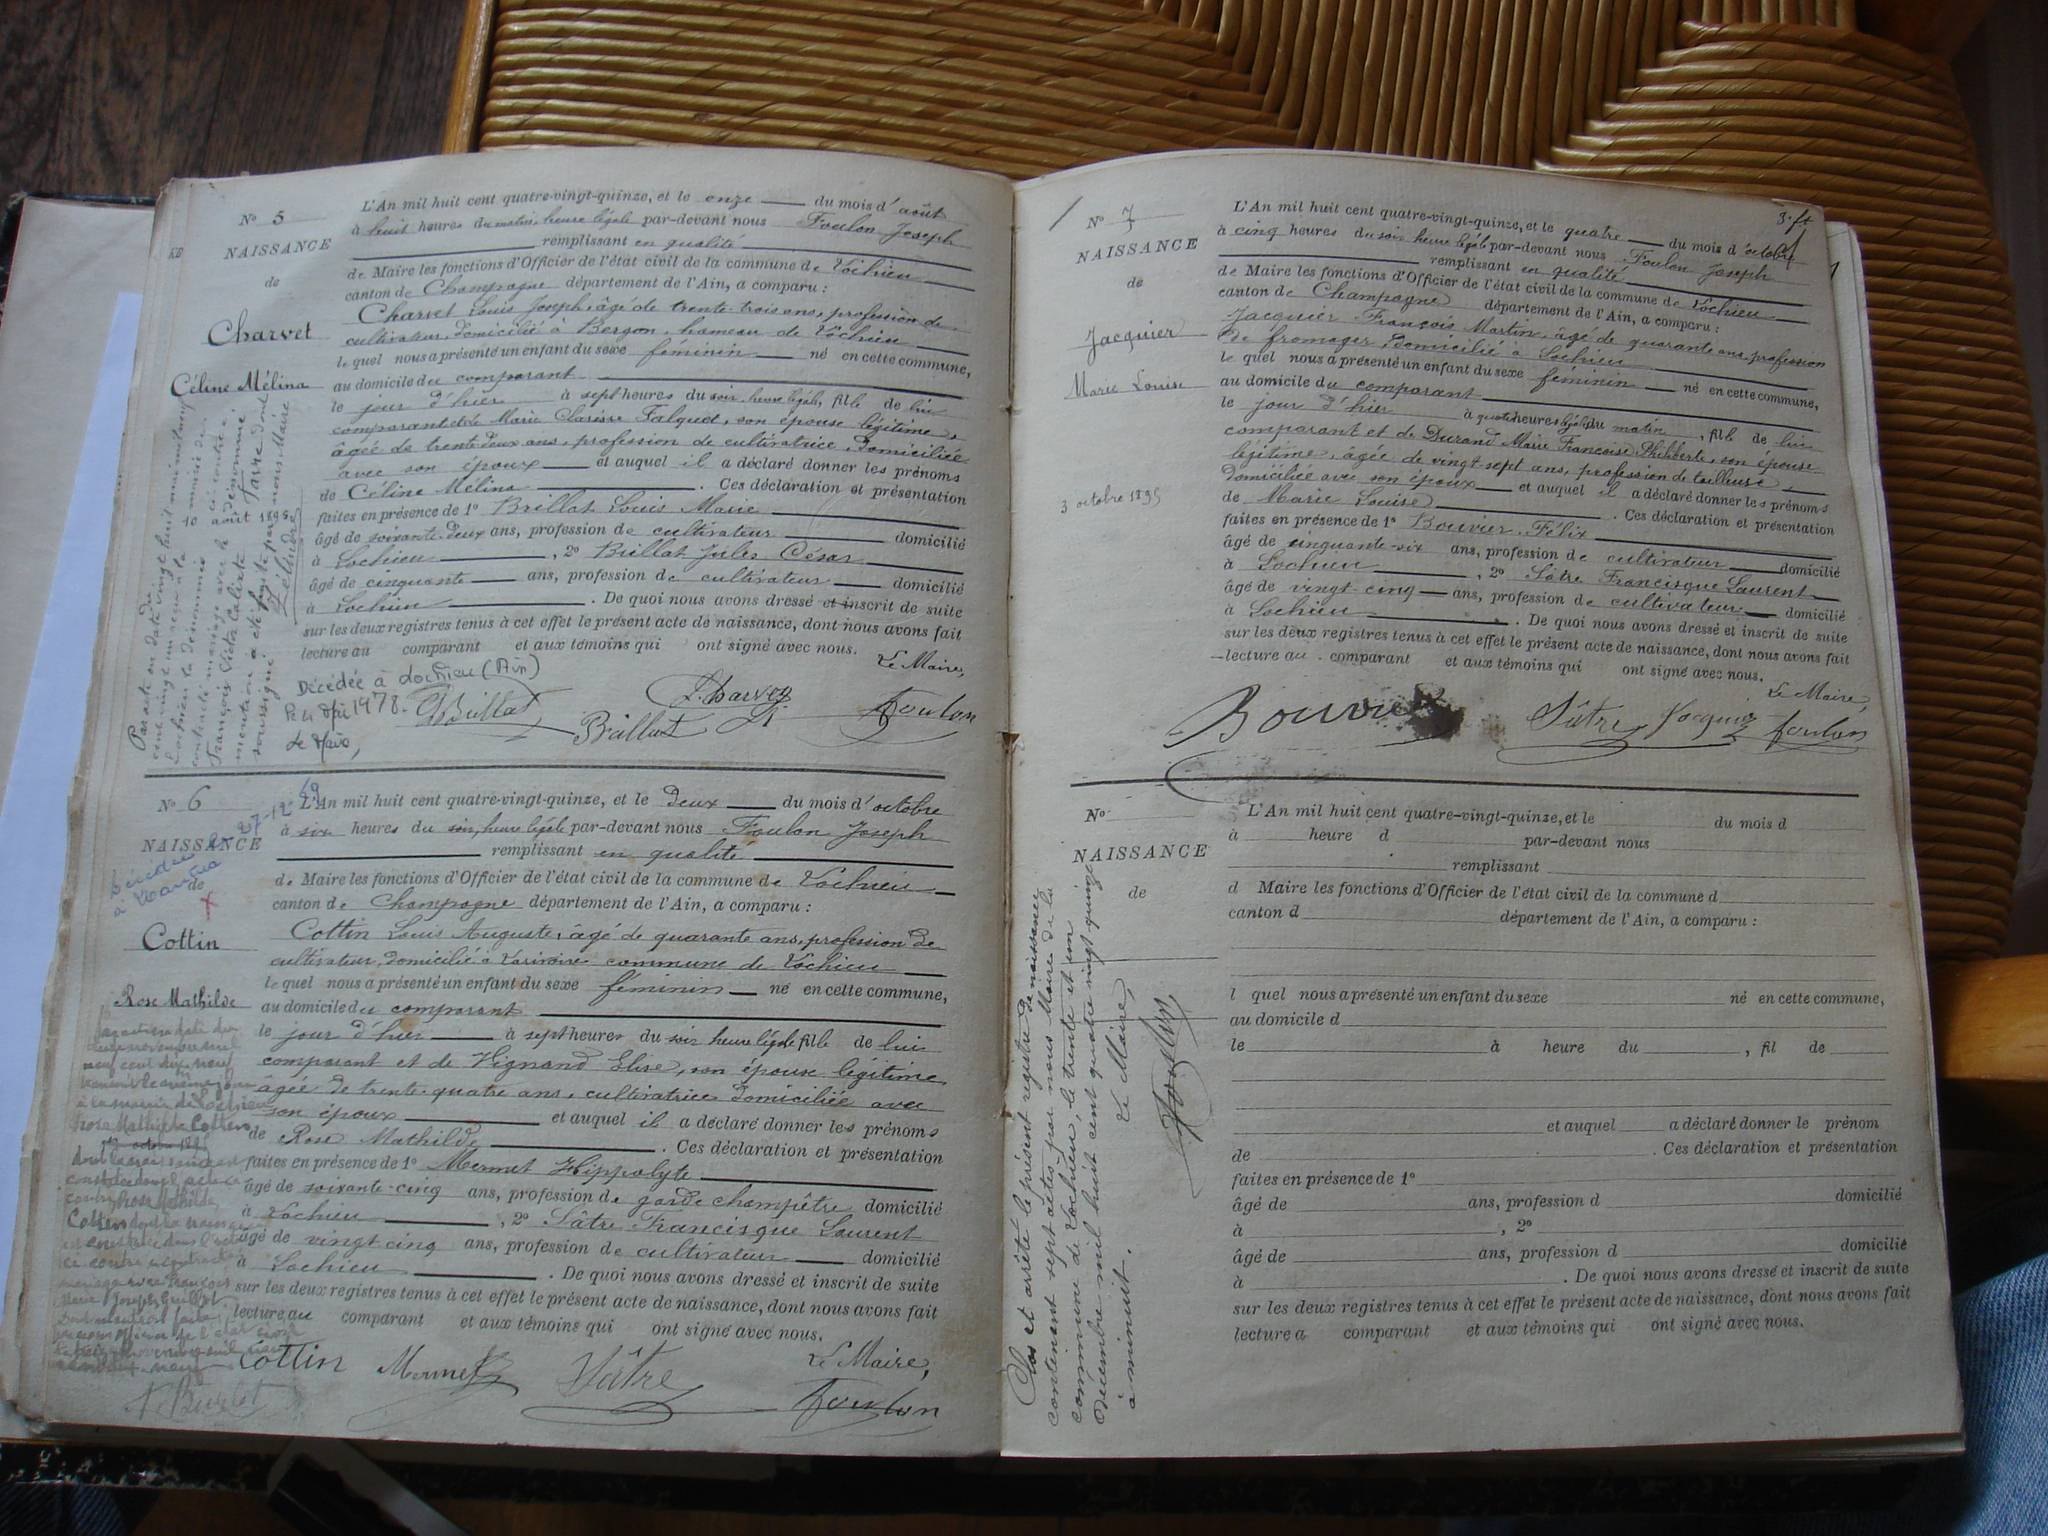 N° 5
NAISSANCE
de
Charvet
Céline Mélina
L'An mil huit cent quatre-vingt-quinze, et le onze du mois d'août
à huit heures du matin, heure légale par-devant nous Foulon Joseph
remplissant en qualité
de Maire les fonctions d'Officier de l'état civil de la commune de Lochieu
canton de Champagne département de l'Ain, a comparu :
Charvet Louis Joseph, âgé de trente trois ans, profession de
cultivateur, domicilié à Bergon, hameau de Lochieu
le quel nous a présenté un enfant du sexe féminin né en cette commune,
au domicile du comparant
le jour d'hier à sept heures du soir, heure légale, fille de lui
comparant et de Marie Clarisse Falquet, son épouse légitime,
âgée de trente deux ans, profession de cultivatrice, domiciliée
avec son époux et auquel il a déclaré donner les prénoms
de Céline Mélina. Ces déclaration et présentation
faites en présence de 1° Brillat Louis Marie
âgé de soixante-deux ans, profession de cultivateur domicilié
à Lochieu, 2° Brillat Jules César
âgé de cinquante ans, profession de cultivateur domicilié
à Lochieu. De quoi nous avons dressé et inscrit de suite
sur les deux registres tenus à cet effet le présent acte de naissance, dont nous avons fait
lecture au comparant et aux témoins qui ont signé avec nous.
Le Maire,
Décédée à Lochieu (Ain)
1978.
Brillat
Brillat
L. Charvet
Foulon
N° 6
NAISSANCE
de
Cottin
Rose Mathilde
27-12-69
L'An mil huit cent quatre-vingt-quinze, et le deux du mois d'octobre
à six heures du soir, heure légale par-devant nous Foulon Joseph
remplissant en qualité
de Maire les fonctions d'Officier de l'état civil de la commune de Lochieu
canton de Champagne département de l'Ain, a comparu :
Cottin Louis Auguste, âgé de quarante ans, profession de
cultivateur, domicilié à commune de Lochieu
le quel nous a présenté un enfant du sexe féminin né en cette commune,
au domicile du comparant
le jour d'hier à sept heures du soir heure légale fille de lui
comparant et de Vignand Elise, son épouse légitime,
âgée de trente-quatre ans, cultivatrice domiciliée avec
son époux et auquel il a déclaré donner les prénoms
de Rose Mathilde. Ces déclaration et présentation
faites en présence de 1° Mermet Hippolyte
âgé de soixante-cinq ans, profession de garde champêtre domicilié
à Lochieu, 2° Sâtre Francisque Laurent
âgé de vingt cinq ans, profession de cultivateur domicilié
à Lochieu. De quoi nous avons dressé et inscrit de suite
sur les deux registres tenus à cet effet le présent acte de naissance, dont nous avons fait
lecture au comparant et aux témoins qui ont signé avec nous.
Le Maire,
Cottin
Mermet
Sâtre
Foulon
N° 7
NAISSANCE
de
Jacquier
Marie Louise
3 octobre 1895
L'An mil huit cent quatre-vingt-quinze, et le quatre du mois d'octobre
à cinq heures du soir heure légale par-devant nous Foulon Joseph
remplissant en qualité
de Maire les fonctions d'Officier de l'état civil de la commune de Lochieu
canton de Champagne département de l'Ain, a comparu :
Jacquier François Martin, âgé de quarante ans, profession
de fromager, domicilié à Lochieu
le quel nous a présenté un enfant du sexe féminin né en cette commune,
au domicile du comparant
le jour d'hier à quatre heures légale du matin, fille de lui
comparant et de Durand Marie Françoise Philiberte, son épouse
légitime, âgée de vingt sept ans, profession de tailleuse,
domiciliée avec son époux et auquel il a déclaré donner les prénoms
de Marie Louise. Ces déclaration et présentation
faites en présence de 1° Bouvier Félix
âgé de cinquante-six ans, profession de cultivateur domicilié
à Lochieu, 2° Sâtre Francisque Laurent
âgé de vingt-cinq ans, profession de cultivateur domicilié
à Lochieu. De quoi nous avons dressé et inscrit de suite
sur les deux registres tenus à cet effet le présent acte de naissance, dont nous avons fait
lecture au comparant et aux témoins qui ont signé avec nous.
Le Maire,
Bouvier
Sâtre
Jacquier
Foulon
N°
NAISSANCE
de
L'An mil huit cent quatre-vingt-quinze, et le du mois d
à heure d par-devant nous
remplissant
d Maire les fonctions d'Officier de l'état civil de la commune d
canton d département de l'Ain, a comparu :
l quel nous a présenté un enfant du sexe né en cette commune,
au domicile d
le à heure du , fil de
et auquel a déclaré donner le prénom
de . Ces déclaration et présentation
faites en présence de 1°
âgé de ans, profession d domicilié
à , 2°
âgé de ans, profession d domicilié
à . De quoi nous avons dressé et inscrit de suite
sur les deux registres tenus à cet effet le présent acte de naissance, dont nous avons fait
lecture a comparant et aux témoins qui ont signé avec nous.
Clos et arrêté le présent registre de naissance
contenant sept actes, par nous Maire de la
commune de Lochieu, le trente et un
Décembre mil huit cent quatre vingt quinze
à minuit.
Le Maire,
Foulon